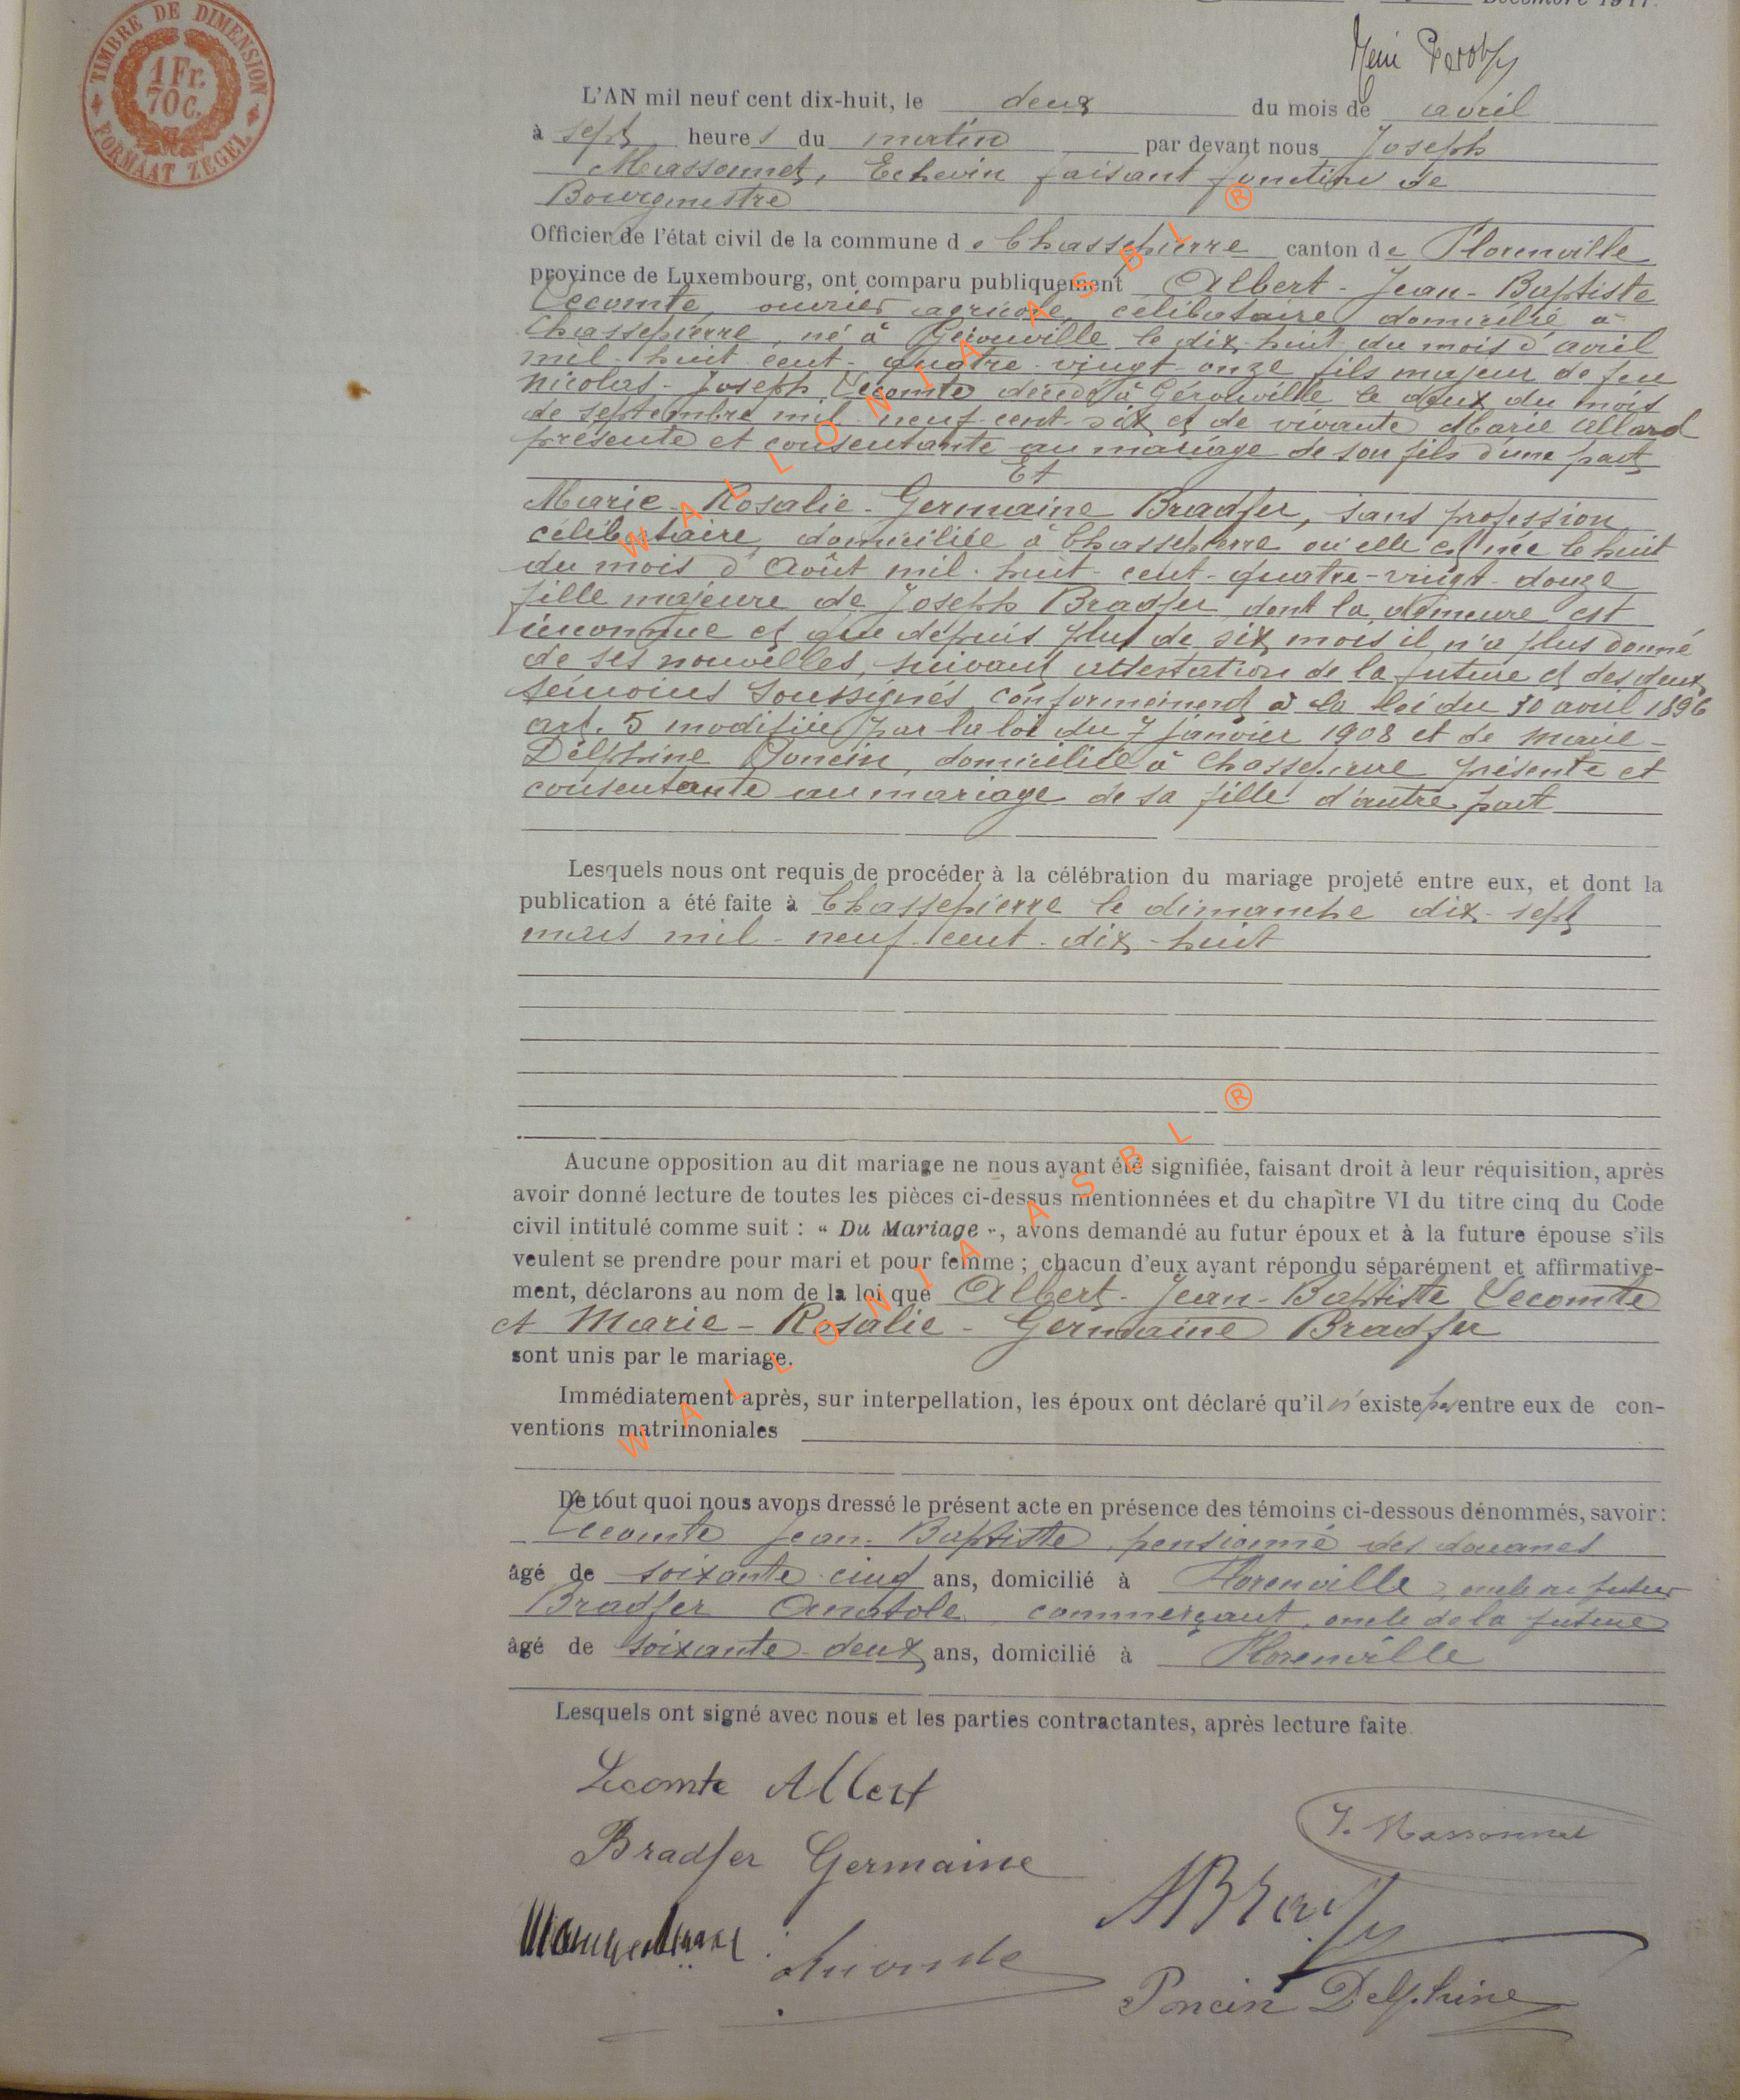 Décembre 1917.
TIMBRE DE DIMENSION
1 Fr.
70 C.
FORMAAT ZEGEL
L'AN mil neuf cent dix-huit, le deux du mois de avril
à sept heures du matin par devant nous Joseph
Massonnet, Echevin faisant fonction de
Bourgmestre
Officier de l'état civil de la commune de Chassepierre canton de Florenville
province de Luxembourg, ont comparu publiquement Albert - Jean - Baptiste
Lecomte, ouvrier agricole, célibataire domicilié à
Chassepierre, né à Gérouville le dix-huit du mois d'avril
mil - huit - cent - quatre - vingt - onze fils majeur de feu
Nicolas - Joseph Lecomte décédé à Gérouville le deux du mois
de septembre mil neuf - cent - six et de vivante Marie Allard
présente et consentante au mariage de son fils d'une part
Et
Marie - Rosalie - Germaine Bradfer, sans profession,
célibataire, domiciliée à Chassepierre où elle est née le huit
du mois d'Août mil - huit - cent - quatre - vingt - douze
fille majeure de Joseph Bradfer dont la demeure est
inconnue et que depuis plus de six mois il n'a plus donné
de ses nouvelles, suivant attestation de la future et des deux
témoins soussignés conformément à la loi du 30 avril 1896
art. 5 modifiée par la loi du 7 janvier 1908 et de Marie -
Delphine Poncin, domiciliée à Chassepierre présente et
consentante au mariage de sa fille d'autre part
Lesquels nous ont requis de procéder à la célébration du mariage projeté entre eux, et dont la
publication a été faite à Chassepierre le dimanche dix - sept
mars mil - neuf - cent - dix - huit
Aucune opposition au dit mariage ne nous ayant été signifiée, faisant droit à leur réquisition, après
avoir donné lecture de toutes les pièces ci-dessus mentionnées et du chapitre VI du titre cinq du Code
civil intitulé comme suit : « Du Mariage », avons demandé au futur époux et à la future épouse s'ils
veulent se prendre pour mari et pour femme ; chacun d'eux ayant répondu séparément et affirmative-
ment, déclarons au nom de la loi que Albert - Jean - Baptiste Lecomte
et Marie - Rosalie - Germaine Bradfer
sont unis par le mariage.
Immédiatement après, sur interpellation, les époux ont déclaré qu'il n'existe pas entre eux de con-
ventions matrimoniales
De tout quoi nous avons dressé le présent acte en présence des témoins ci-dessous dénommés, savoir :
Lecomte Jean - Baptiste, pensionné des douanes
âgé de soixante - cinq ans, domicilié à Florenville, oncle du futur
Bradfer Anatole, commerçant, oncle de la future
âgé de soixante - deux ans, domicilié à Florenville
Lesquels ont signé avec nous et les parties contractantes, après lecture faite.
Lecomte Albert
J. Massonnet
Bradfer Germaine
ABradfer
Poncin Delphine
WALLONIA ASBL ®
WALLONIA ASBL ®